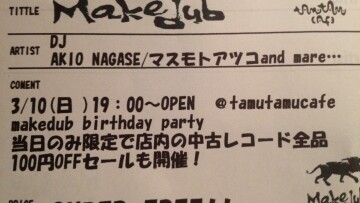 TITTLE Makedub
ARTIST DJ
AKIO NAGASE/マスモトアツコand mare…
COMENT
3/10(日)19：00～OPEN @tamutamucafe
makedub birthday party
当日のみ限定で店内の中古レコード全品
100円OFFセールも開催！
Makedub